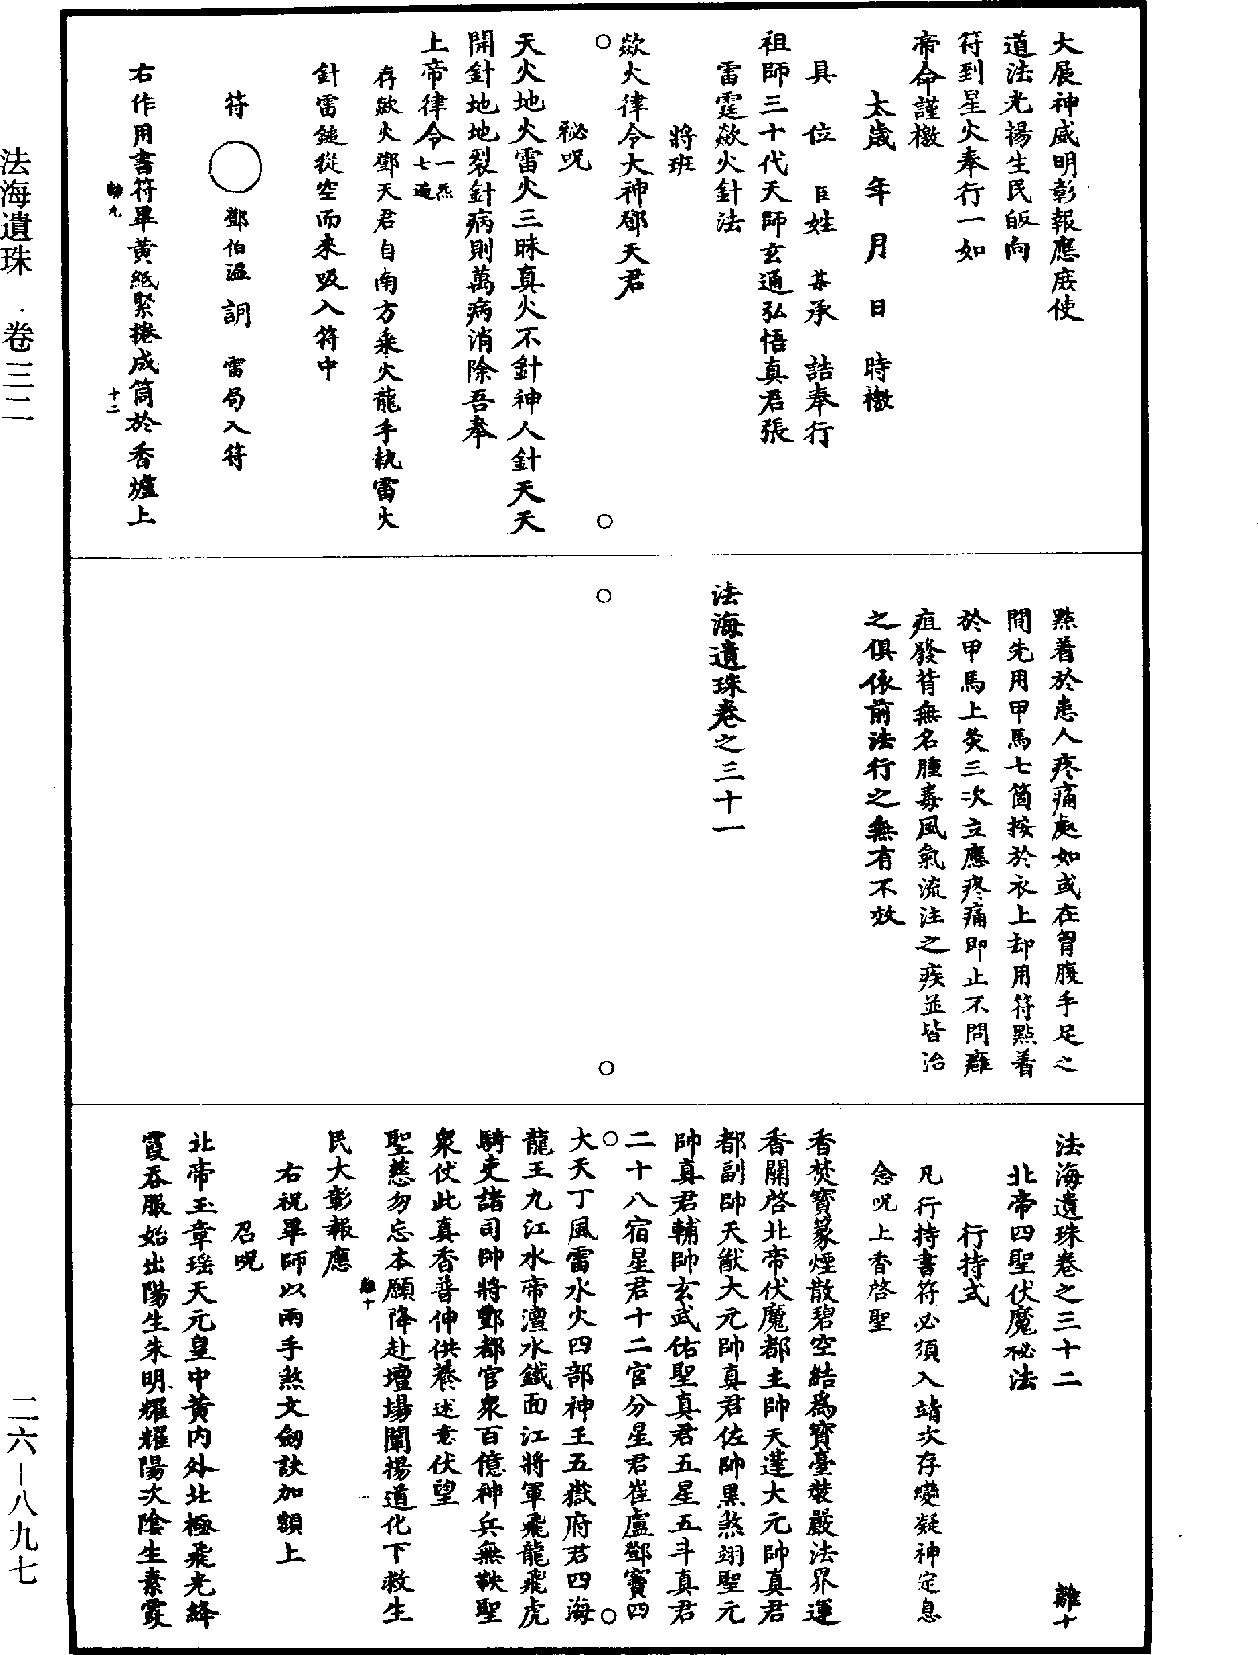 大展神威明彰報應庶使
道法光揚生民皈向
符到星火奉行一如
帝命謹檄
太歲 年 月 日 時檄
具 位 臣姓 某承 誥奉行
祖師三十代天師玄通弘悟真君張
雷霆欻火針法
將班
欻火律令大神鄧天君
祕呪
天火地火雷火三昧真火不針神人針天天
開針地地裂針病則萬病消除吾奉
上帝律令一炁七遍
存欻火鄧天君自南方乘火龍手執雷火
針雷鎚從空而來吸入符中
符 鄧伯溫 詷 雷局入符
右作用書符畢黃紙緊捲成筒於香爐上
十二
點着於患人疼痛處如或在胷腹手足之
間先用甲馬七箇按於衣上却用符點着
於甲馬上熒三次立應疼痛即止不問癰
疽發背無名腫毒風氣流注之疾並皆治
之俱依前法行之無有不效
法海遺珠卷之三十一
法海遺珠卷之三十二 離十
北帝四聖伏魔祕法
行持式
凡行持書符必須入靖次存變凝神定息
念呪上香啓聖
香焚寶篆煙散碧空結爲寶臺裝嚴法界運
香關啓北帝伏魔都主帥天蓬大元帥真君
都副帥天猷大元帥真君佐帥黑煞翊聖元
帥真君輔帥玄武佑聖真君五星五斗真君
二十八宿星君十二宮分星君崔盧鄧竇四
大天丁風雷水火四部神王五嶽府君四海
龍王九江水帝澶水鐵面江將軍飛龍飛虎
騎吏諸司帥將酆都官衆百億神兵無鞅聖
衆仗此真香普伸供養述意伏望
聖慈勿忘本願降赴壇場闡揚道化下救生
民大彰報應
離十
右祝畢師以兩手煞文劒訣加額上
召呪
北帝玉章瑶天元皇中黃内外北極飛光絳
霞吞服始出陽生朱明耀耀陽次陰生素霞
法海遺珠 · 卷三二
二六－八九七